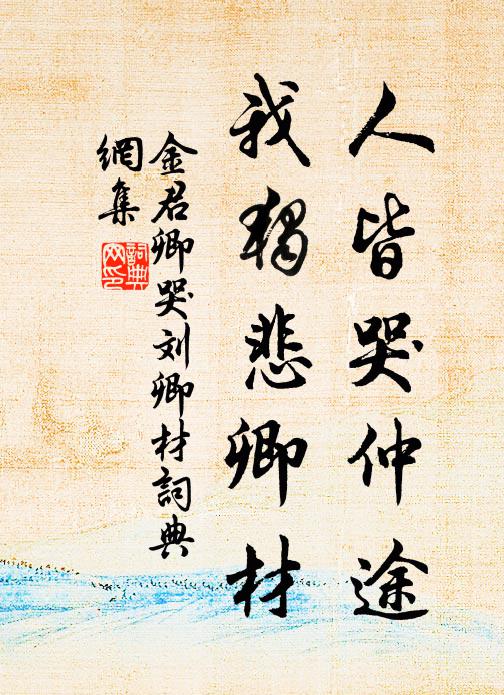 人皆哭仲途
我独悲卿材
金君卿哭刘卿材詞典
網集
詞典
网印